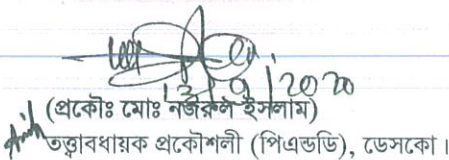 13/9/2020
(প্রকৌঃ মোঃ নজরুল ইসলাম)
তত্ত্বাবধায়ক প্রকৌশলী (পিএন্ডডি), ডেসকো।